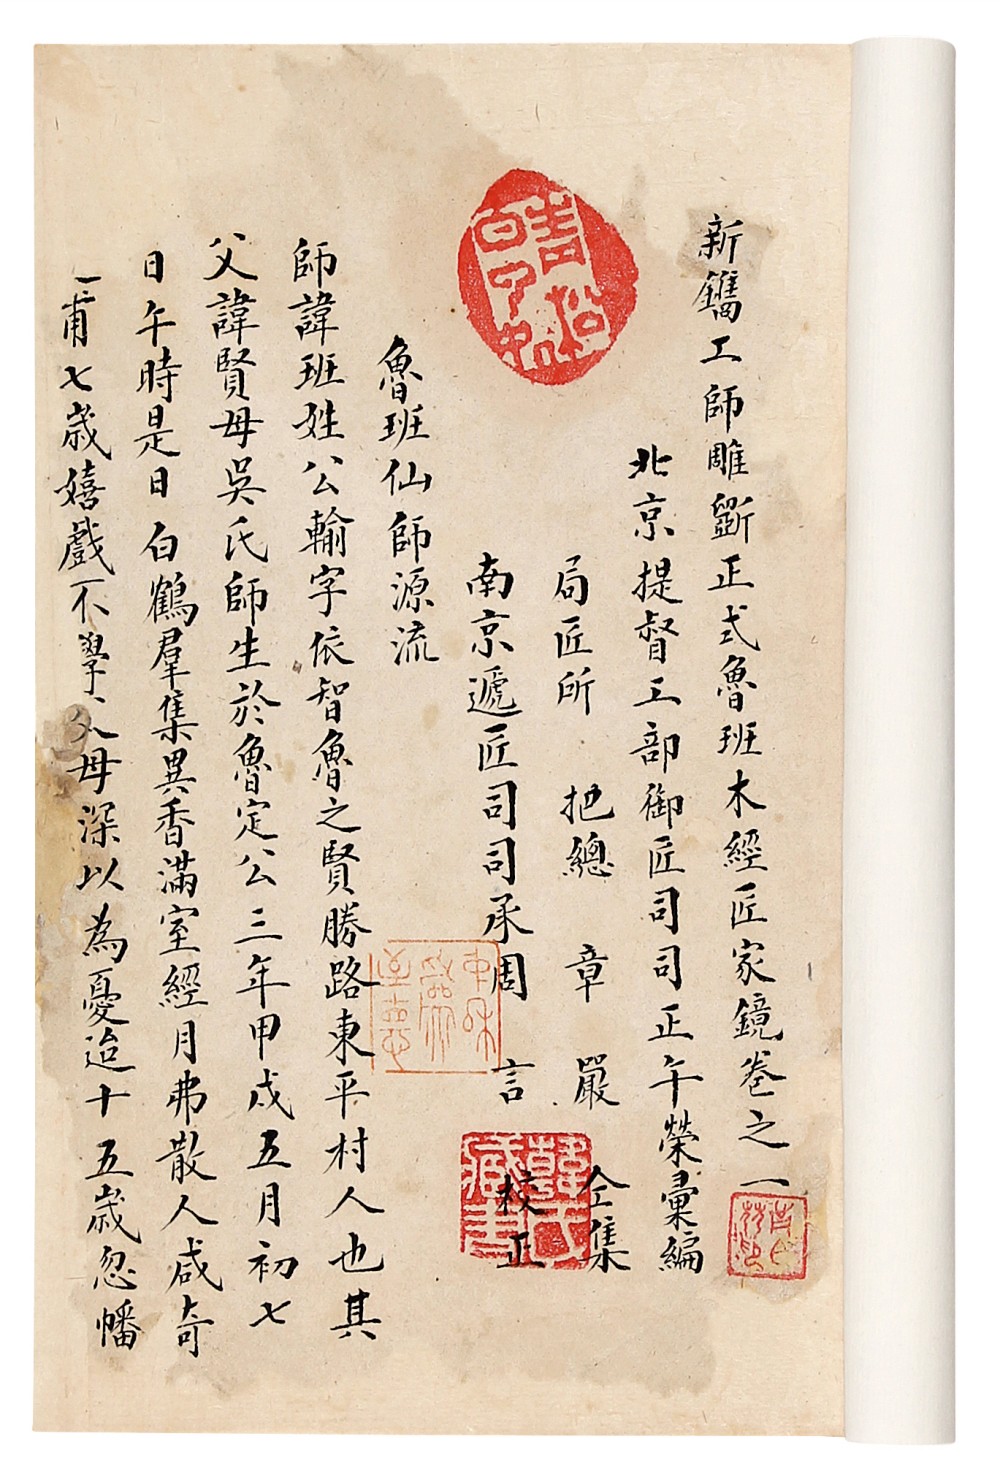 新鐫工師雕斵正式魯班木經匠家鏡卷之一
北京提督工部御匠司司正午榮彙編
局匠所 把總 章 嚴 仝集
南京遞匠司司承周 言 校正
魯班仙師源流
師諱班姓公輸字依智魯之賢勝路東平村人也其
父諱賢母吳氏師生於魯定公三年甲戌五月初七
日午時是日白鶴羣集異香滿室經月弗散人咸奇
甫七歲嬉戲不學父母深以為憂迨十五歲忽幡
韓氏藏書